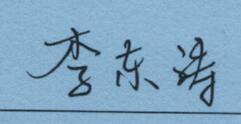 李东涛